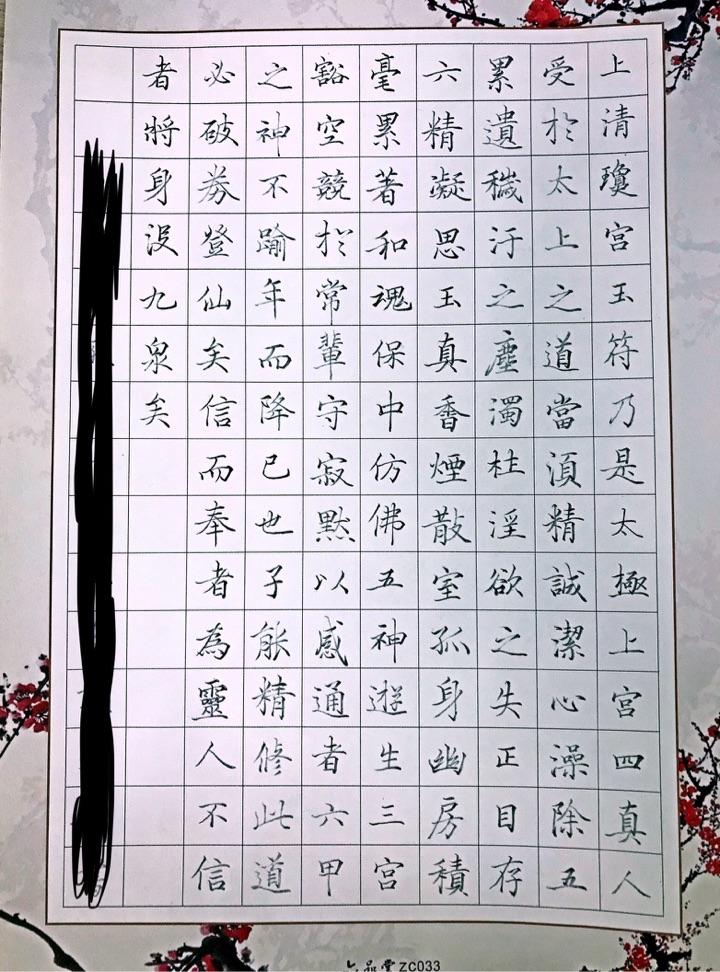 上清瓊宮玉符乃是太極上宮四真人
受於太上之道當湏精誠潔心澡除五
累遺穢汙之塵濁杜淫欲之失正目存
六精凝思玉真香煙散室孤身幽房積
毫累著和魂保中仿佛五神遊生三宮
豁空競於常輩守寂默以感通者六甲
之神不踰年而降已也子能精修此道
必破券登仙矣信而奉者為靈人不信
者將身沒九泉矣
六品堂 ZC033